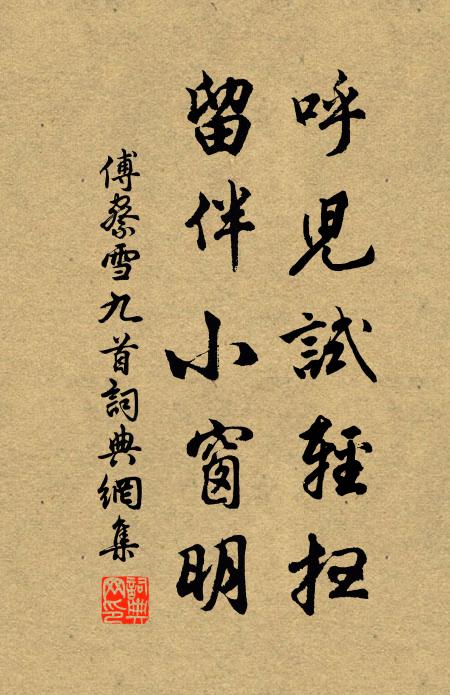 呼兒試輕扫
留伴小窗明
傅察雪九首詞典網集
詞典网印